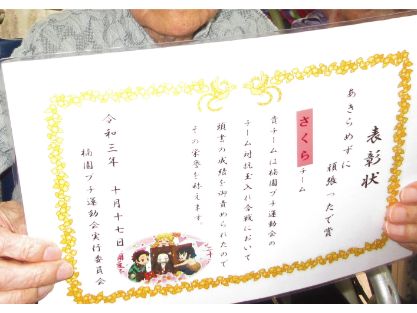 表彰状
あきらめずに
頑張ったで賞
さくらチーム
貴チームは桃園プチ運動会の
チーム対抗玉入れ合戦において
頭書の成績を御責められたので
その栄誉を称えます。
令和三年　十月十七日
桃園プチ運動会実行委員会